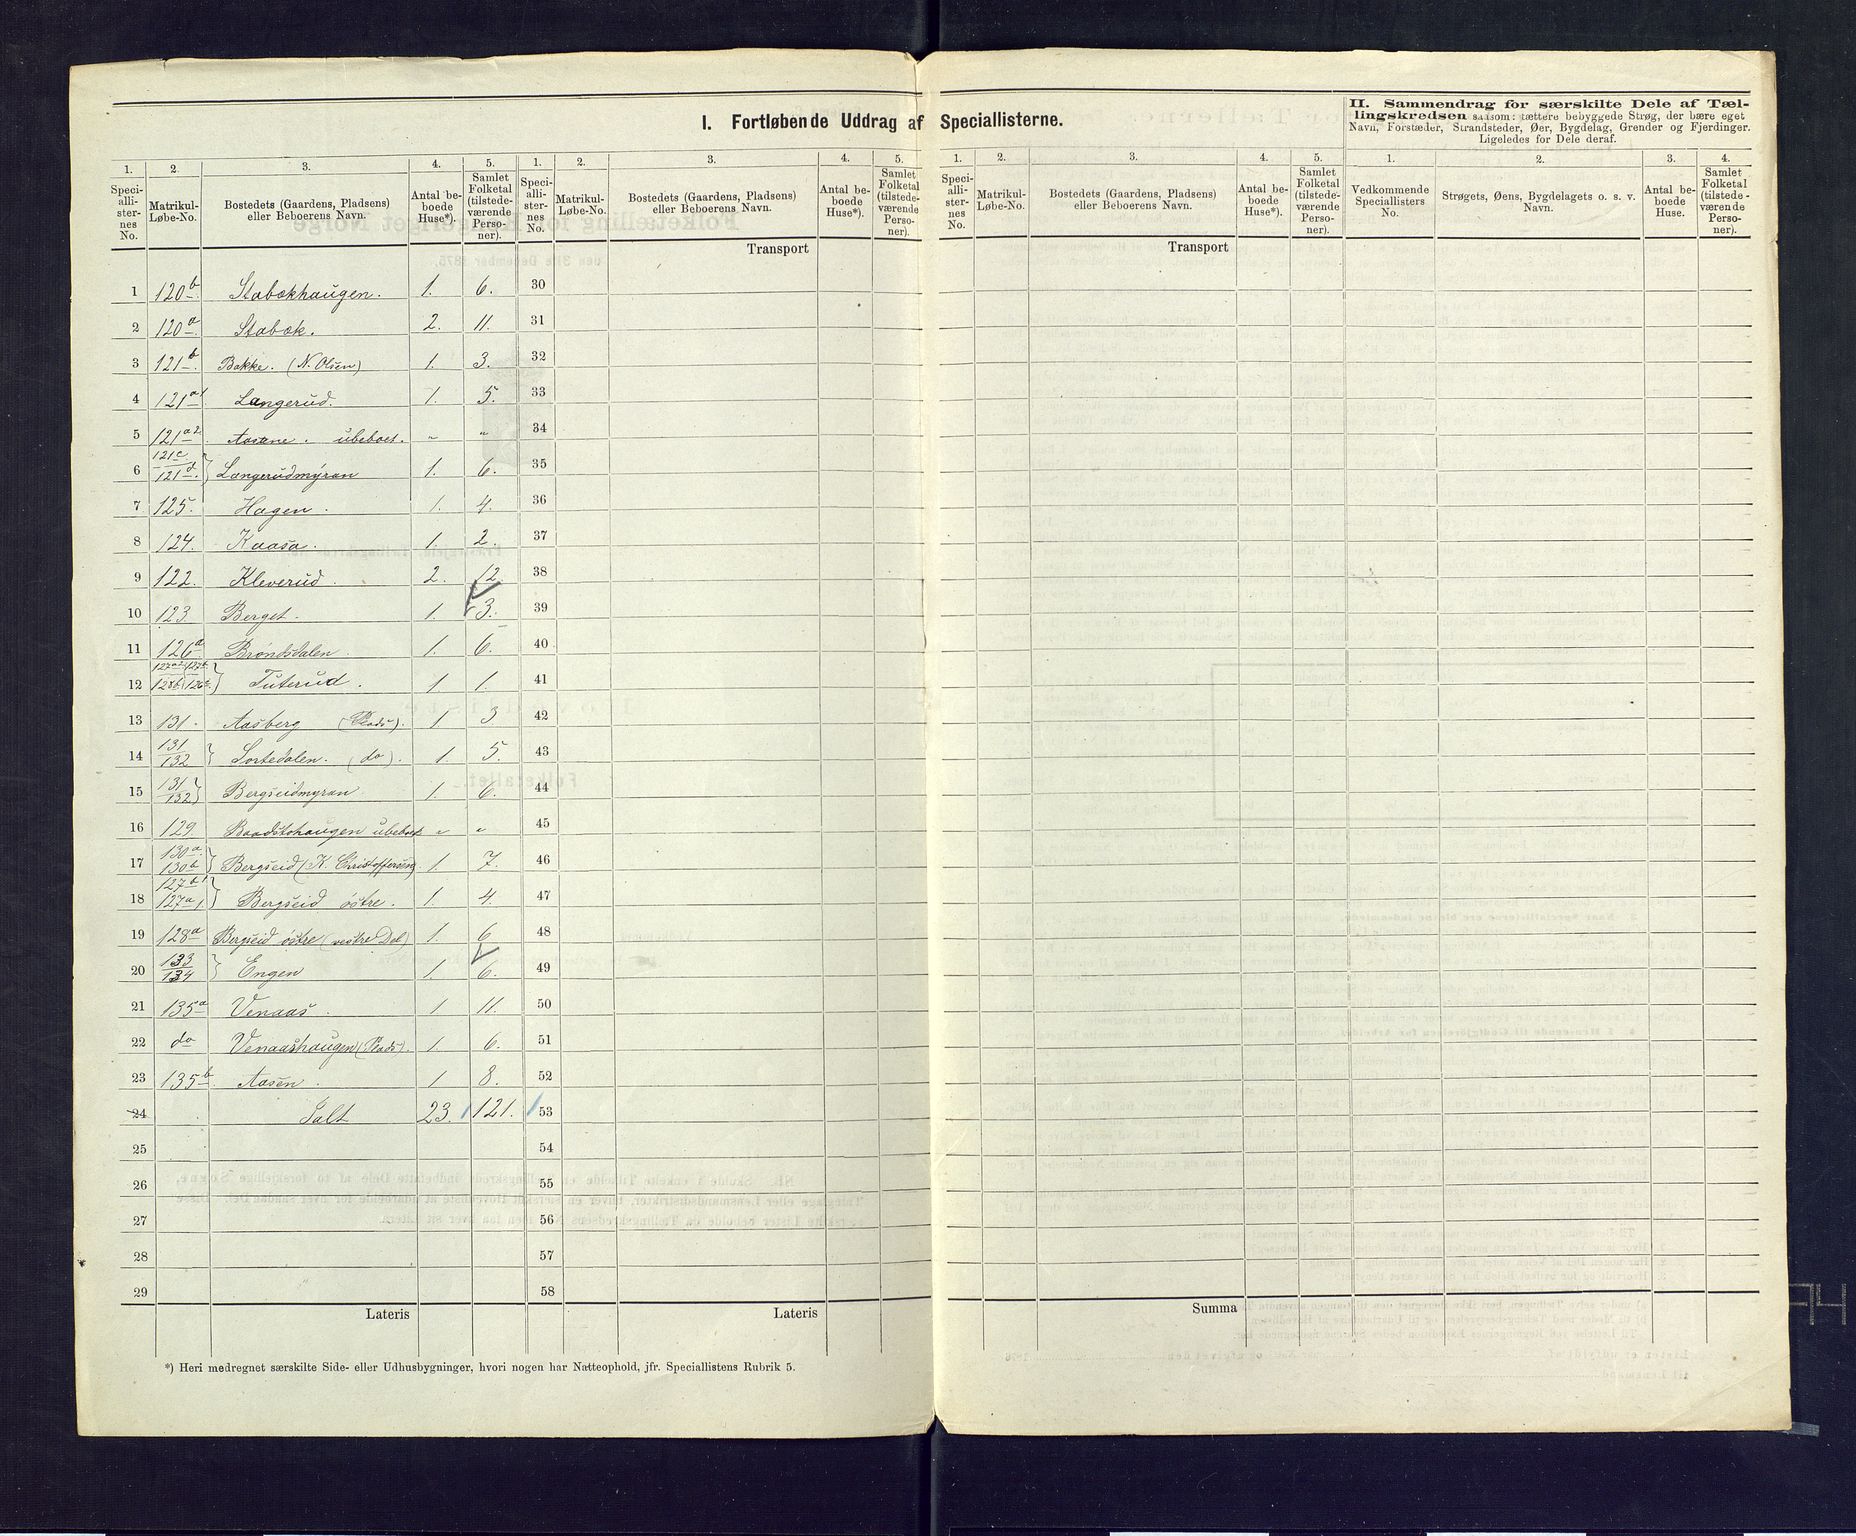 I. Fortløbende Uddrag af Speciallisterne.
II. Sammendrag for særskilte Dele af Tællingskredsen saasom: tættere bebyggede Strøg, der bære eget Navn, Forstæder, Strandsteder, Øer, Bygdelag, Grender og Fjerdinger. Ligeledes for Dele deraf.
1. 2. 3. 4. 5. 1. 2. 3. 4. 5. 1. 2. 3. 4. 5. 1. 2. 3. 4.
Speciallisternes No. Matrikul-Løbe-No. Bostedets (Gaardens, Pladsens) eller Beboerens Navn. Antal beboede Huse*). Samlet Folketal (tilstedeværende Personer).
Speciallisternes No. Matrikul-Løbe-No. Bostedets (Gaardens, Pladsens) eller Beboerens Navn. Antal beboede Huse*). Samlet Folketal (tilstedeværende Personer).
Speciallisternes No. Matrikul-Løbe-No. Bostedets (Gaardens, Pladsens) eller Beboerens Navn. Antal beboede Huse*). Samlet Folketal (tilstedeværende Personer).
Vedkommende Speciallisters No. Strøgets, Øens, Bygdelagets o. s. v. Navn. Antal beboede Huse. Samlet Folketal (tilstedeværende Personer).
Transport Transport
1 120b Stabækhaugen. 1. 6. 30
2 120a Stabæk. 2. 11. 31
3 121b Bakke. (N. Olsen) 1. 3. 32
4 121a1 Langerud. 1. 5. 33
5 121a2 Aasene. ubeboet. " " 34
6 121c 121d } Langerudmyran 1. 6. 35
7 125. Hagen. 1. 4. 36
8 124. Kaasa. 1. 2. 37
9 122. Kleverud. 2. 12. 38
10 123 Berget. 1. 3. 39
11 126a Brøndsdalen. 1. 6. 40
12 Tuterud. 1 1. 41
13 131. Aasberg (Plads). 1 3 42
14 131 132 } Sortedalen. (do). 1. 5. 43
15 131 132 } Bergseidmyran 1. 6. 44
16 129 Baadstohaugen ubeboet " " 45
17 130a 130b } Bergseid (K. Christoffersen) 1. 7. 46
18 127b1 127a1. } Bergseid østre. 1. 4. 47
19 128a Bergseid østre (vestre Del) 1. 6 48
20 133 134 } Engen 1. 6. 49
21 135a Venaas. 1 11. 50
22 do Venaashaugen (Plads). 1. 6. 51
23 135b. Aasen. 1 8. 52
24 Ialt 23. 121. 53
25 54
26 55
27 56
28 57
29 58
Lateris Lateris Summa
*) Heri medregnet særskilte Side- eller Udhusbygninger, hvori nogen har Natteophold, jfr. Speciallistens Rubrik 5.